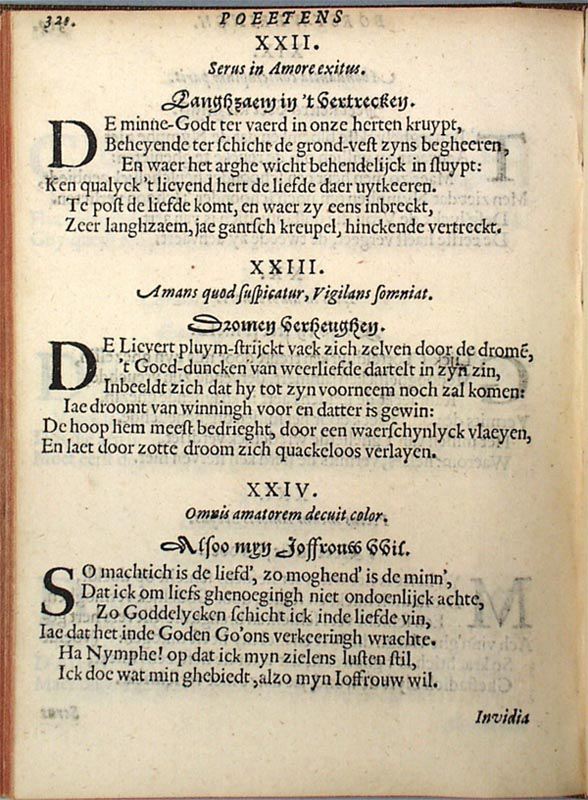 328. POEETENS
XXII.
Serus in Amore exitus.
Langhzaem in 't Vertrecken.
DE minne-Godt ter vaerd in onze herten kruypt,
Beheyende ter schicht de grond-vest zyns begheeren,
En waer het arghe wicht behendelijck in sluypt:
Ken qualyck 't lievend hert de liefde daer uytkeeren.
Te post de liefde komt, en waer zy eens inbreckt,
Zeer langhzaem, jae gantsch kreupel, hinckende vertreckt.
XXIII.
Amans quod suspicatur, Vigilans somniat.
Dromen Verheughen.
DE Lievert pluym-strijckt vack zich zelven door de dromē,
't Goed-duncken van weerliefde dartelt in zyn zin,
Inbeeldt zich dat hy tot zyn voorneem noch zal komen:
Iae droomt van winningh voor en datter is gewin:
De hoop hem meest bedrieght, door een waerschynlyck vlaeyen,
En laet door zotte droom zich quackeloos verlayen.
XXIV.
Omnis amatorem decuit color.
Alsoo myn Joffrouw Wil.
SO machtich is de liefd', zo moghend' is de minn',
Dat ick om liefs ghenoegingh niet ondoenlijck achte,
Zo Goddelycken schicht ick inde liefde vin,
Iae dat het inde Goden Go'ons verkeeringh wrachte.
Ha Nymphe! op dat ick myn zielens lusten stil,
Ick doe wat min ghebiedt, alzo myn Ioffrouw wil.
Invidia